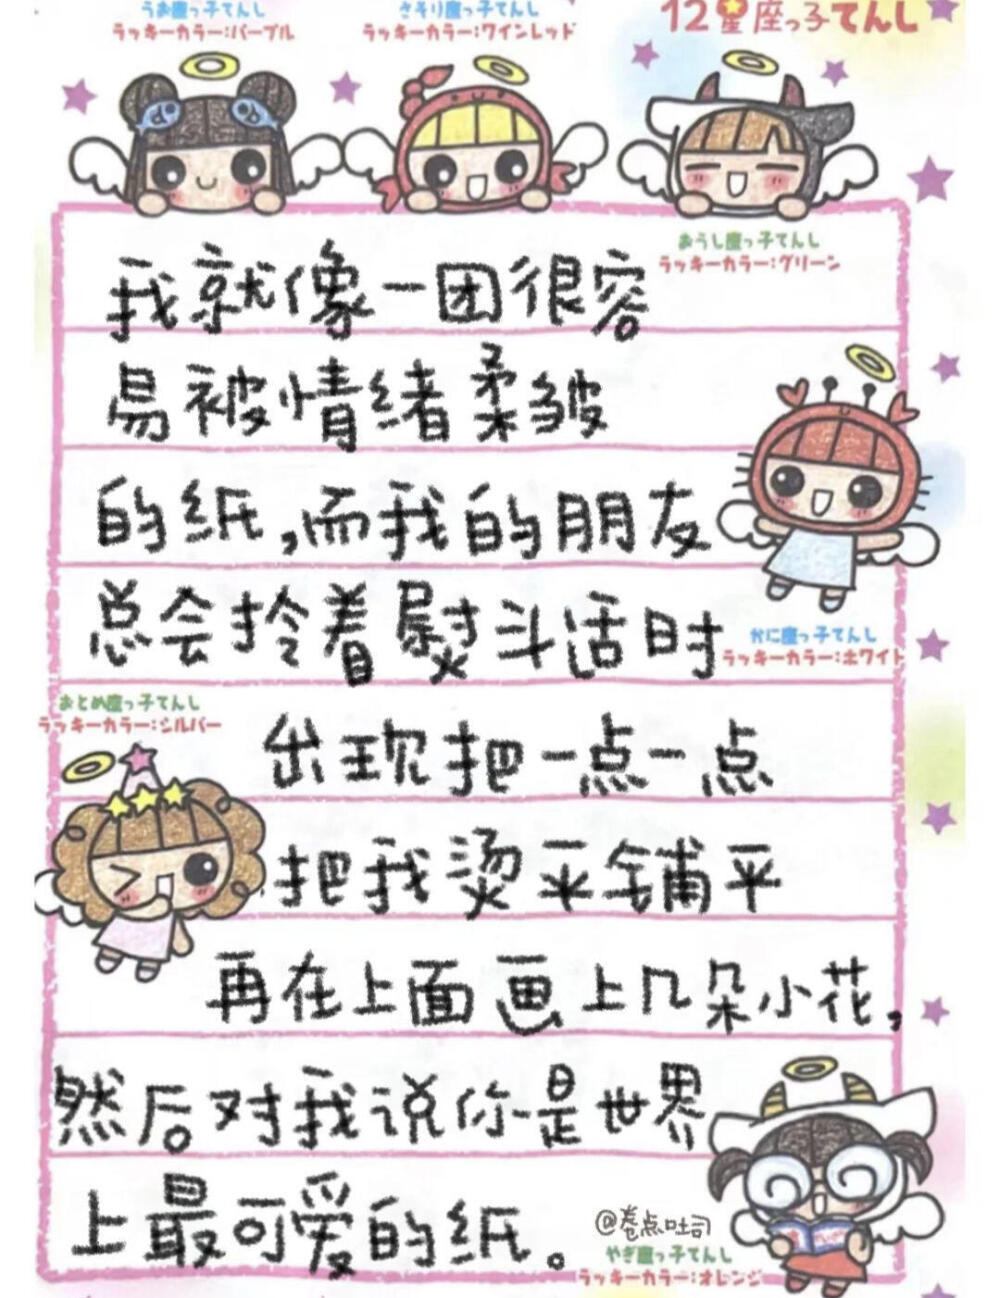 うお座っ子てんし
ラッキーカラー:パープル
さそり座っ子てんし
ラッキーカラー:ワインレッド
12星座っ子てんし
おうし座っ子てんし
ラッキーカラー:グリーン
我就像一团很容
易被情绪柔皱
的纸,而我的朋友
总会拎着熨斗适时
かに座っ子てんし
ラッキーカラー:ホワイト
おとめ座っ子てんし
ラッキーカラー:シルバー
出现把一点一点
把我烫平铺平
再在上面画上几朵小花,
然后对我说你是世界
上最可爱的纸。
@卷点吐司
やぎ座っ子てんし
ラッキーカラー:オレンジ